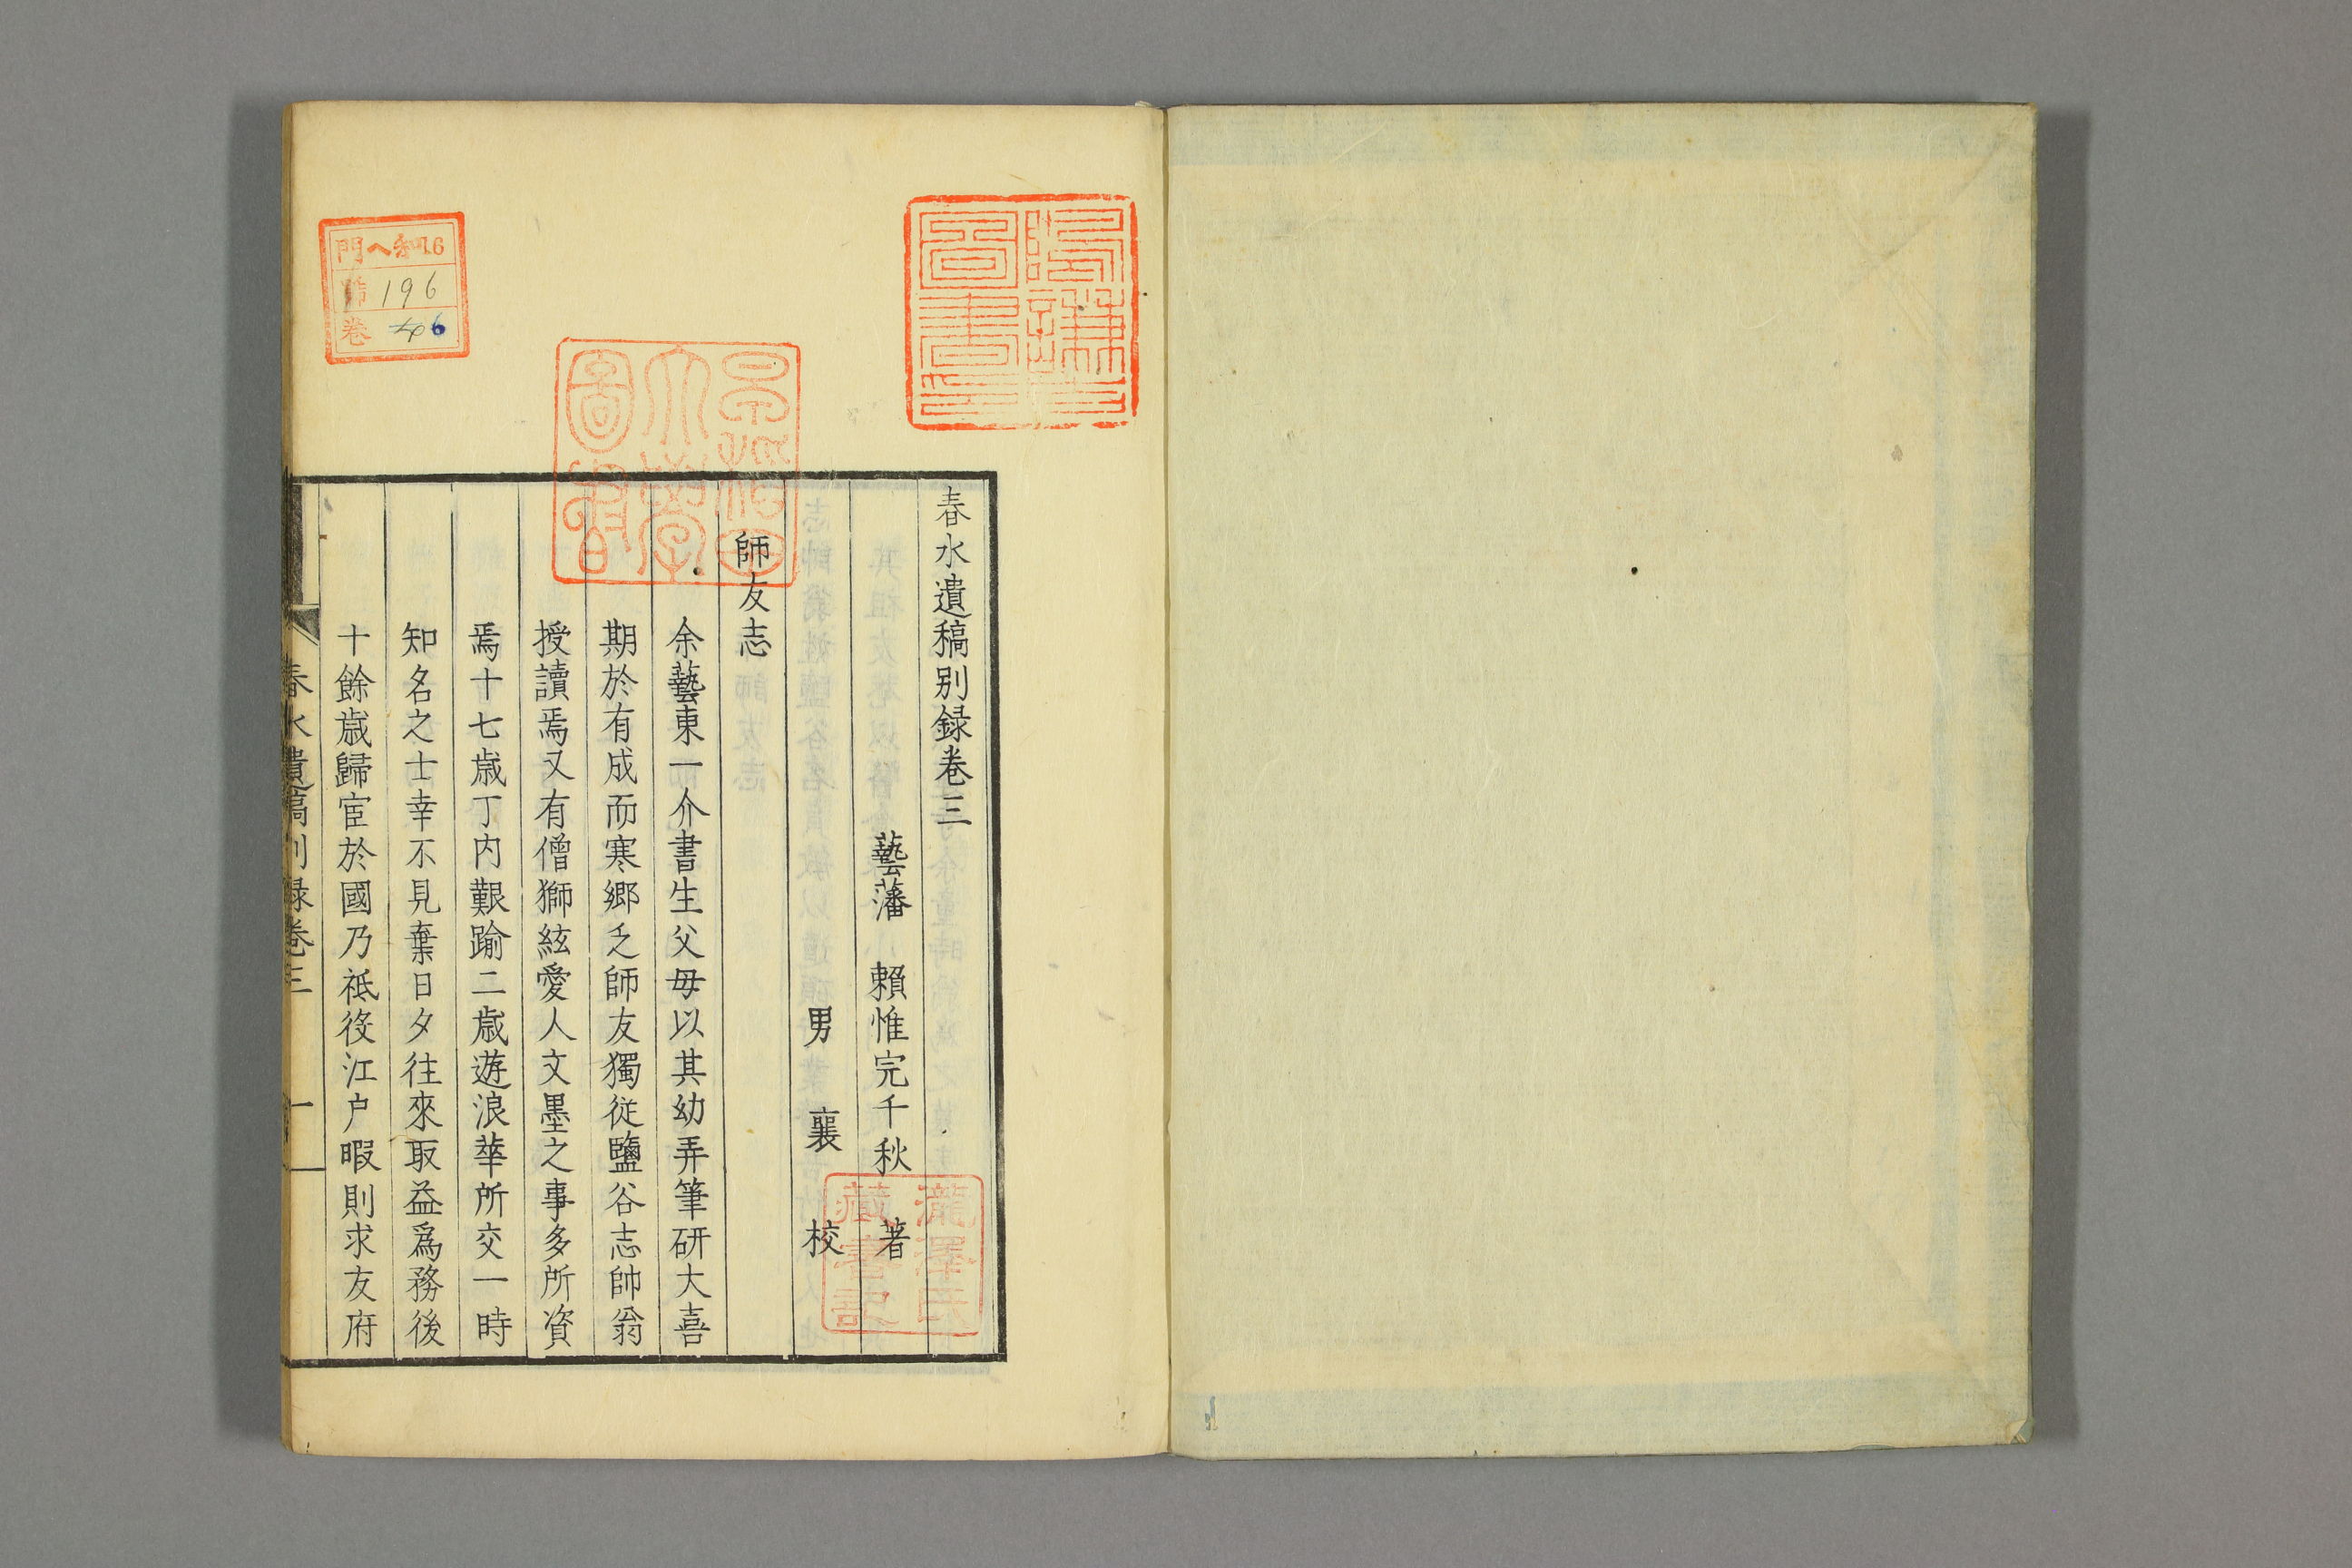 春水遺稿别録卷三
藝藩 賴惟完千秋 著
男 襄 校
師友志
余藝東一介書生父母以其幼弄筆研大喜
期於有成而寒郷乏師友獨從鹽谷志帥翁
授讀焉又有僧獅絃愛人文墨之事多所資
焉十七歳丁内艱踰二歳遊浪華所交一時
知名之士幸不見棄日夕往來取益爲務後
十餘歳歸宦於國乃祗役江户暇則求友府
春水遺稿別録卷三 一
門へ和16
號196
卷 6
圖書
瀧澤氏
藏書記